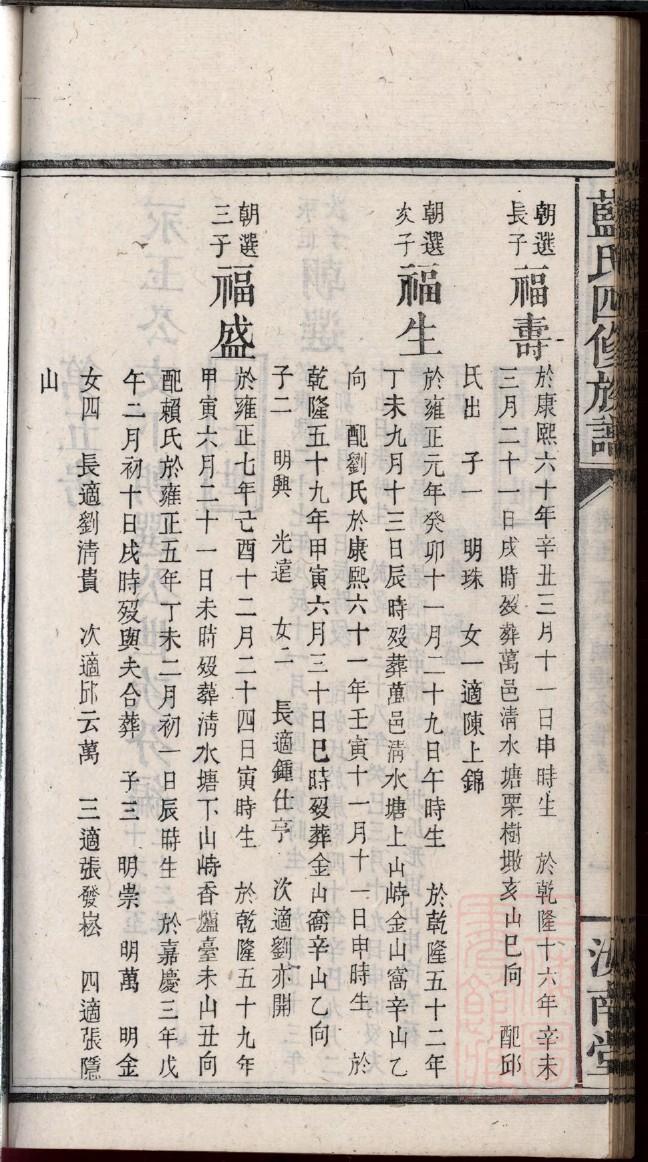 藍氏四修族譜
汝南堂
朝選
長子
福壽
於康熙六十年辛丑三月十一日申時生 於乾隆十六年辛未
三月二十一日戌時歿葬萬邑清水塘栗樹墩亥山巳向 配邱
氏出 子一 明珠 女一適陳上錦
朝選
次子
福生
於雍正元年癸卯十一月二十九日午時生 於乾隆五十二年
丁未九月十三日辰時歿葬萬邑清水塘上山峙金山窩辛山乙
向 配劉氏於康熙六十一年壬寅十一月十一日申時生 於
乾隆五十九年甲寅六月三十日巳時歿葬金山窩辛山乙向
子二 明興 光達 女二 長適鍾仕亨 次適劉亦開
朝選
三子
福盛
於雍正七年己酉十二月二十四日寅時生 於乾隆五十九年
甲寅六月二十一日未時歿葬清水塘下山峙香爐臺未山丑向
配賴氏於雍正五年丁未二月初一日辰時生 於嘉慶三年戊
午二月初十日戌時歿與夫合葬 子三 明崇 明萬 明金
女四 長適劉清貴 次適邱云萬 三適張發崧 四適張隱
山